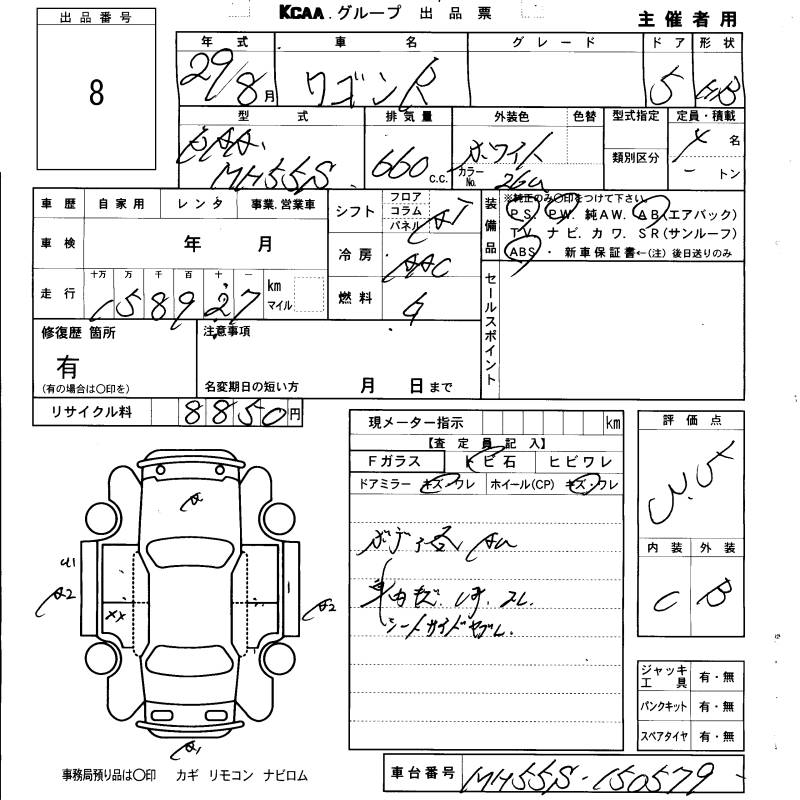 KCAA.グループ 出品票
主催者用
出品番号
8
年式 車名 グレード ドア 形状
29/8月 ワゴンR 5 HB
型式 排気量 外装色 色替 型式指定 定員・積載
MH55S 660 c.c. ホワイト 4名
カラーNo. 26U 類別区分 ートン
車歴 自家用 レンタ 事業.営業車
シフト フロア コラム パネル AT
装備品 ※純正のみ〇印をつけて下さい。
PS. PW. 純AW. AB(エアバック)
TV. ナビ. カワ. SR(サンルーフ)
ABS・新車保証書←(注)後日送りのみ
車検 年 月
冷房 AAC
走行 十万 万 千 百 十 一 km マイル
158927
燃料
セールスポイント
修復歴 箇所
有
(有の場合は〇印を)
注意事項
名変期日の短い方 月 日まで
リサイクル料 8850円
現メーター指示 km
【査定員記入】
Fガラス トビ石 ヒビワレ
ドアミラー キズ・ワレ ホイール(CP) キズ・ワレ
評価点
3.5
内装 外装
C B
ボディ各 AU
シートサイド
A
U1
A2
XX
A2
A1
ジャッキ工具 有・無
パンクキット 有・無
スペアタイヤ 有・無
事務局預り品は〇印 カギ リモコン ナビロム
車台番号 MH55S-150579